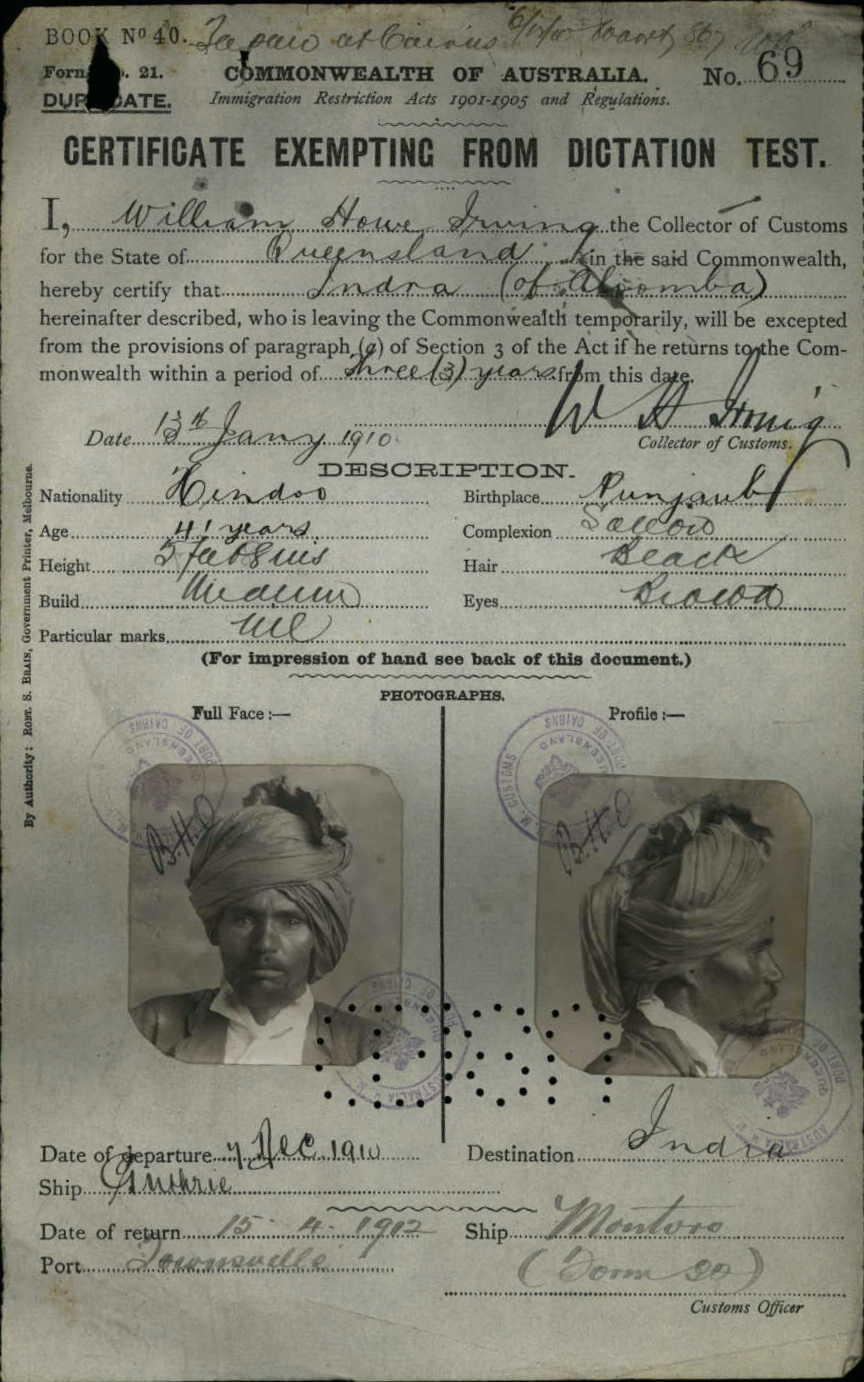 BOOK Nº 40. at Cairns
Form No. 21. COMMONWEALTH OF AUSTRALIA. No. 69
DUPLICATE. Immigration Restriction Acts 1901-1905 and Regulations.
CERTIFICATE EXEMPTING FROM DICTATION TEST.
I, William Howe Irving the Collector of Customs
for the State of Queensland in the said Commonwealth,
hereby certify that Indra (of Aloomba)
hereinafter described, who is leaving the Commonwealth temporarily, will be excepted
from the provisions of paragraph (a) of Section 3 of the Act if he returns to the Com-
monwealth within a period of three (3) years from this date.
W H Irving
Date 13th Jany 1910 Collector of Customs.
DESCRIPTION.
Nationality Hindoo Birthplace Punjaub
Age 41 years Complexion
Height 5 feet 8 ins Hair Black
Build Medium Eyes Brown
Particular marks Nil
(For impression of hand see back of this document.)
PHOTOGRAPHS.
Full Face :— Profile :—
B.H.O B.H.O
Date of departure 7 Dec 1910 Destination India
Ship Guthrie
Date of return 15. 4. 1912 Ship Montoro
Port Townsville (Form 32)
Customs Officer
By Authority: ROBT. S. BRAIN, Government Printer, Melbourne.